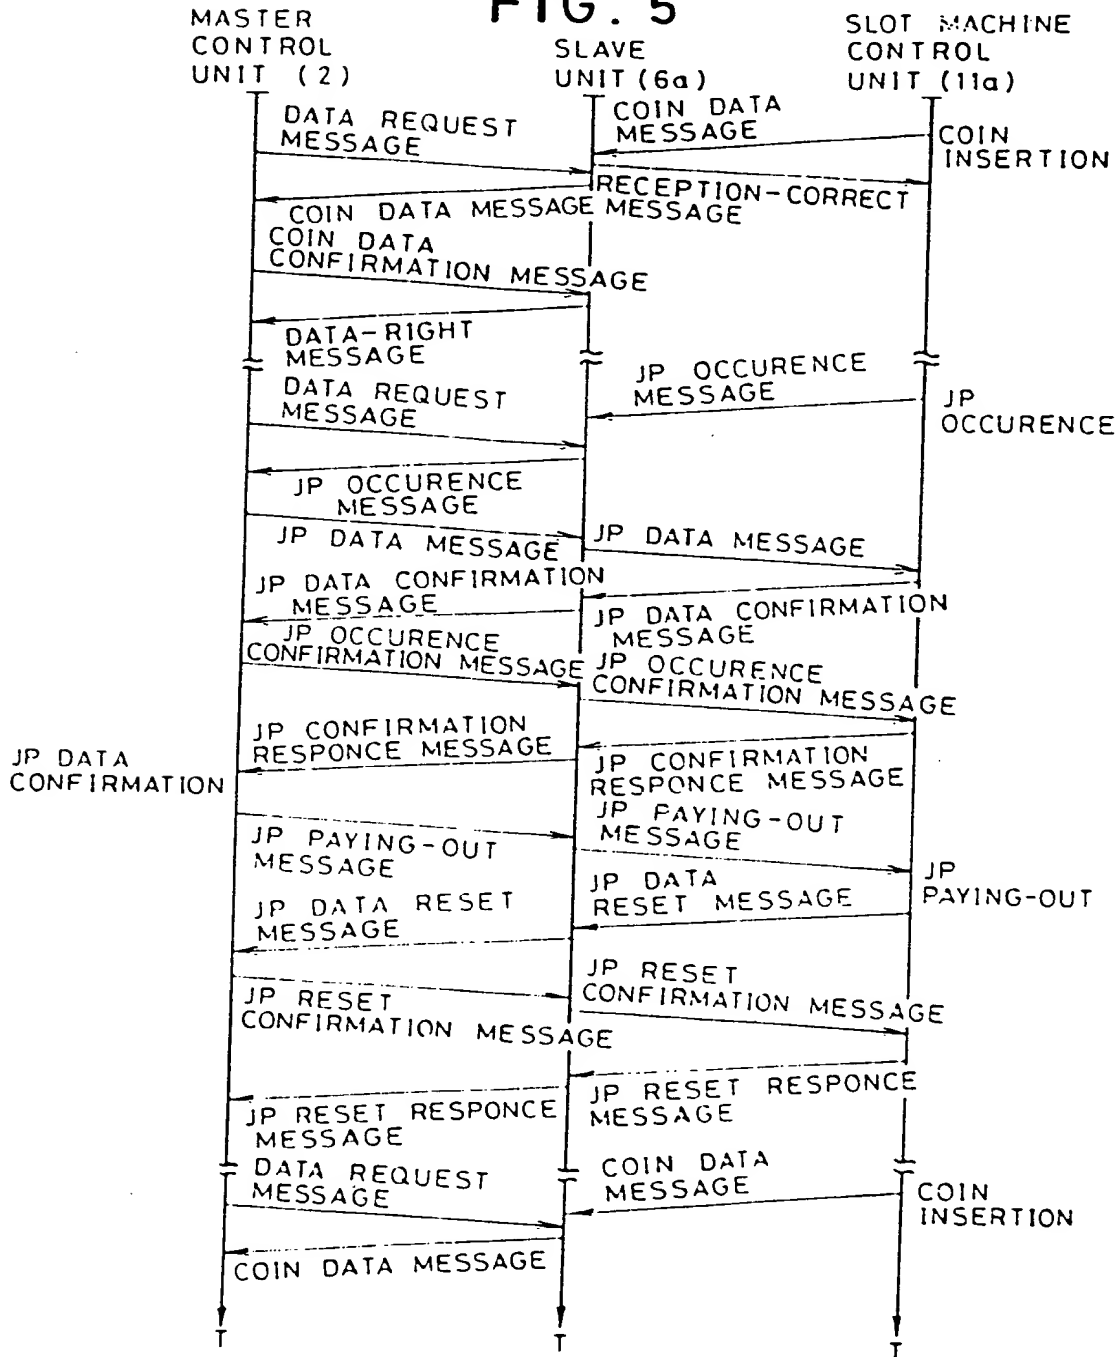 FIG. 5
MASTER
CONTROL
UNIT (2)
SLAVE
UNIT (6a)
SLOT MACHINE
CONTROL
UNIT (11a)
DATA REQUEST
MESSAGE
COIN DATA
MESSAGE
COIN
INSERTION
RECEPTION-CORRECT
MESSAGE
COIN DATA MESSAGE
COIN DATA
CONFIRMATION MESSAGE
DATA-RIGHT
MESSAGE
JP OCCURENCE
MESSAGE
JP
OCCURENCE
DATA REQUEST
MESSAGE
JP OCCURENCE
MESSAGE
JP DATA MESSAGE
JP DATA MESSAGE
JP DATA CONFIRMATION
MESSAGE
JP DATA CONFIRMATION
MESSAGE
JP OCCURENCE
CONFIRMATION MESSAGE
JP OCCURENCE
CONFIRMATION MESSAGE
JP CONFIRMATION
RESPONCE MESSAGE
JP CONFIRMATION
RESPONCE MESSAGE
JP DATA
CONFIRMATION
JP PAYING-OUT
MESSAGE
JP PAYING-OUT
MESSAGE
JP
PAYING-OUT
JP DATA
RESET MESSAGE
JP DATA RESET
MESSAGE
JP RESET
CONFIRMATION MESSAGE
JP RESET
CONFIRMATION MESSAGE
JP RESET RESPONCE
MESSAGE
JP RESET RESPONCE
MESSAGE
DATA REQUEST
MESSAGE
COIN DATA
MESSAGE
COIN
INSERTION
COIN DATA MESSAGE
T
T
T